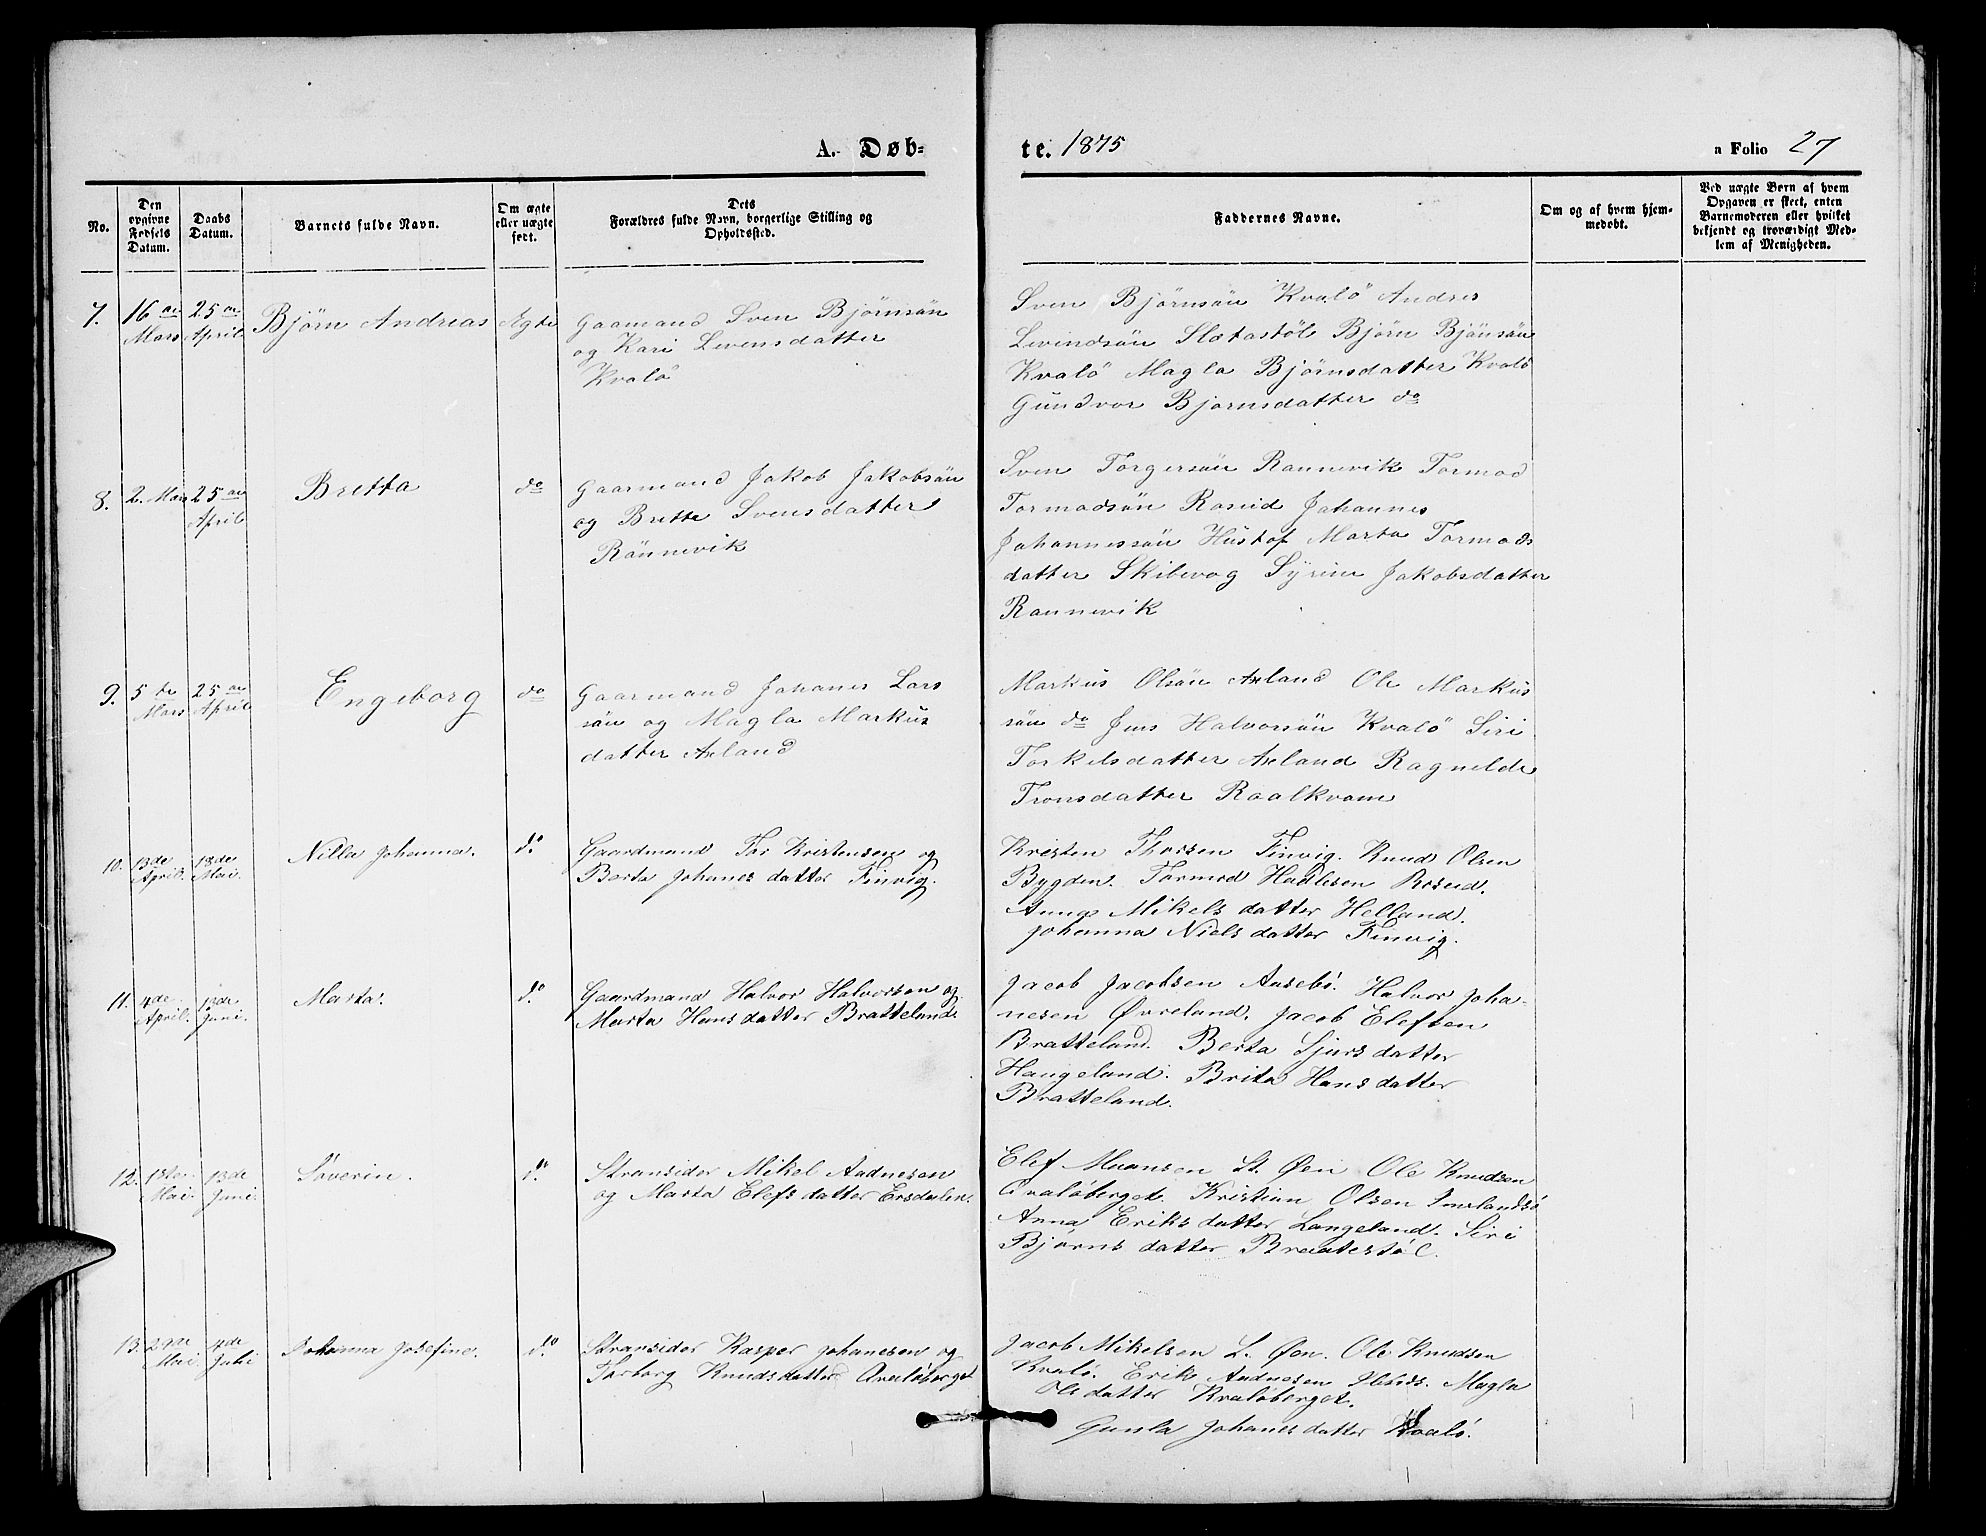 A. Døb-
te. 1875
a Folio 27
No.
Den opgivne Fødsels Datum.
Daabs Datum.
Barnets fulde Navn.
Om ægte eller uægte født.
Dets Forældres fulde Navn, borgerlige Stilling og Opholdssted.
Faddernes Navne.
Om og af hvem hjem-
medøbt.
Ved uægte Børn af hvem
Opgaven er skeet, enten
Barnemoderen eller hvilket
bekjendt og troværdigt Med-
lem af Menigheden.
7. 16 Mars 25 April Bjørn Andreas Ægte
Gaamand Sven Bjørnsön
og Kari Levensdatter
Kvalö
Sven Bjørnsön Kvalö Andres
Levindsön Sletastöl Björn Bjönsön
Kvalö Magla Björnsdatter Kvalö
Gundvor Bjørnsdatter do
8. 2. Mars 25 April Bretta do
Gaarmand Jakob Jakobsön
og Brette Svensdatter
Rönnevik
Sven Torgersön Rannevik Tormod
Tormodsön Roseid Johannes
Johannessön Hustof Marta Tormods
datter Skibevog Syrine Jakobsdatter
Rannevik
9. 5te Mars 25 April Engeborg do
Gaarmand Johanes Lars
sön og Magla Markus
datter Axland
Markus Olsön Axland Ole Markus
sön do Jens Halvorsön Kvalö Siri
Torkelsdatter Axland Ragnelde
Tronsdatter Raalkvam
10. 13de April. 18de Mai. Nilla Johanna. do
Gaardmand Tor Kristensen og
Berta Johanes datter Finvig.
Kristen Thorsen Finvig. Knud Olsen
Bygden. Tormod Hadlesen Roseid.
Anna Mikels datter Helland.
Johanna Niels datter Finvig.
11. 4de April. 13de Juni. Marta. do
Gaardmand Halvor Halvorsen og
Marta Hans datter Bratteland.
Jacob Jacobsen Aasebö. Halvor Joha-
nesen Øvreland. Jacob Elefsen
Bratteland. Berta Sjurs datter
Haugeland. Brita Hans datter
Bratteland.
12. 1ste Mai. 13de Juni. Söverin. do
Stransider Mikel Andnesen
og Marta Elefs datter Ersdalen.
Elef Maansen St. Øen Ole Knudsen
Qvalöberget. Kristian Olsen Imslandsö
Anna Eriks datter Langeland. Siri
Björns datter Brautestöl.
13. 29de Mai. 4de Juli Johanna Josefine. do
Stransider Kasper Johanesen og
Torborg Knuds datter Qvalöberget
Jacob Mikelsen L. Øen. Ole Knudsen
Kvalö. Erik Andnesen Magla
Ols datter Kvalöberget.
Gunla Johanes datter Kvalö.